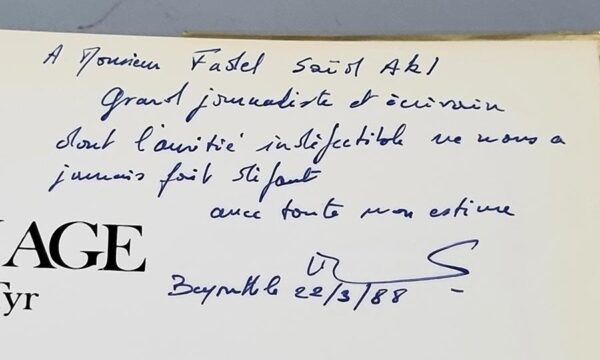 A Monsieur Fadel Saïd Akl
Grand journaliste et écrivain
dont l'amitié indéfectible ne nous a
jamais fait défaut
avec toute mon estime
AGE
Tyr
Beyrouth le 22/3/88